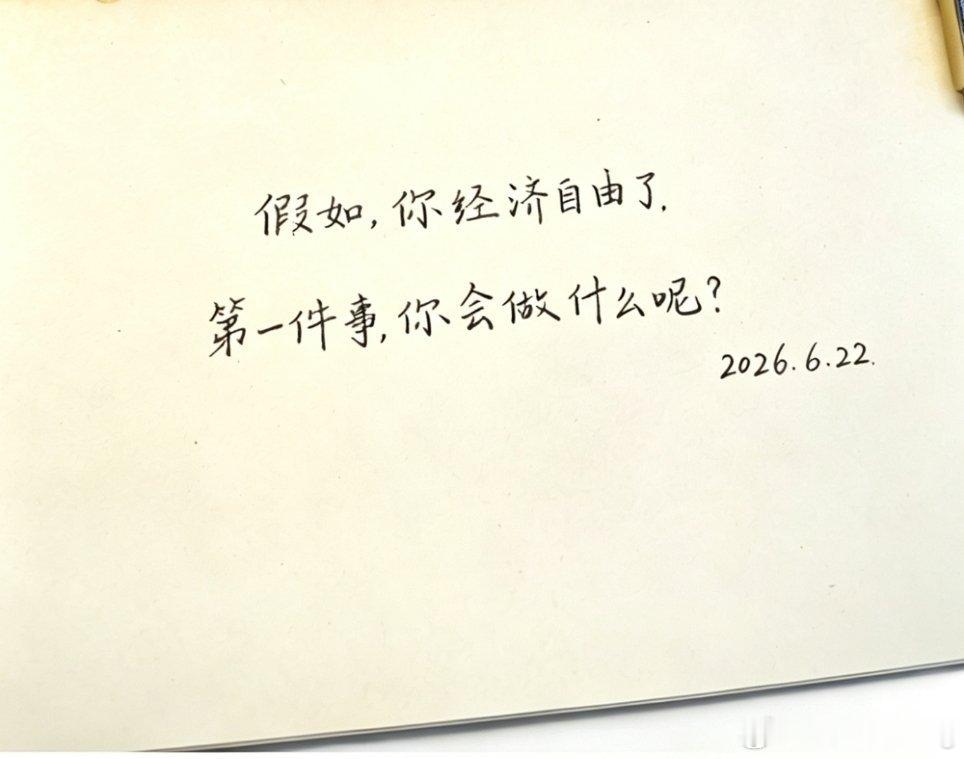 假如,你经济自由了.
第一件事,你会做什么呢?
2026.6.22.